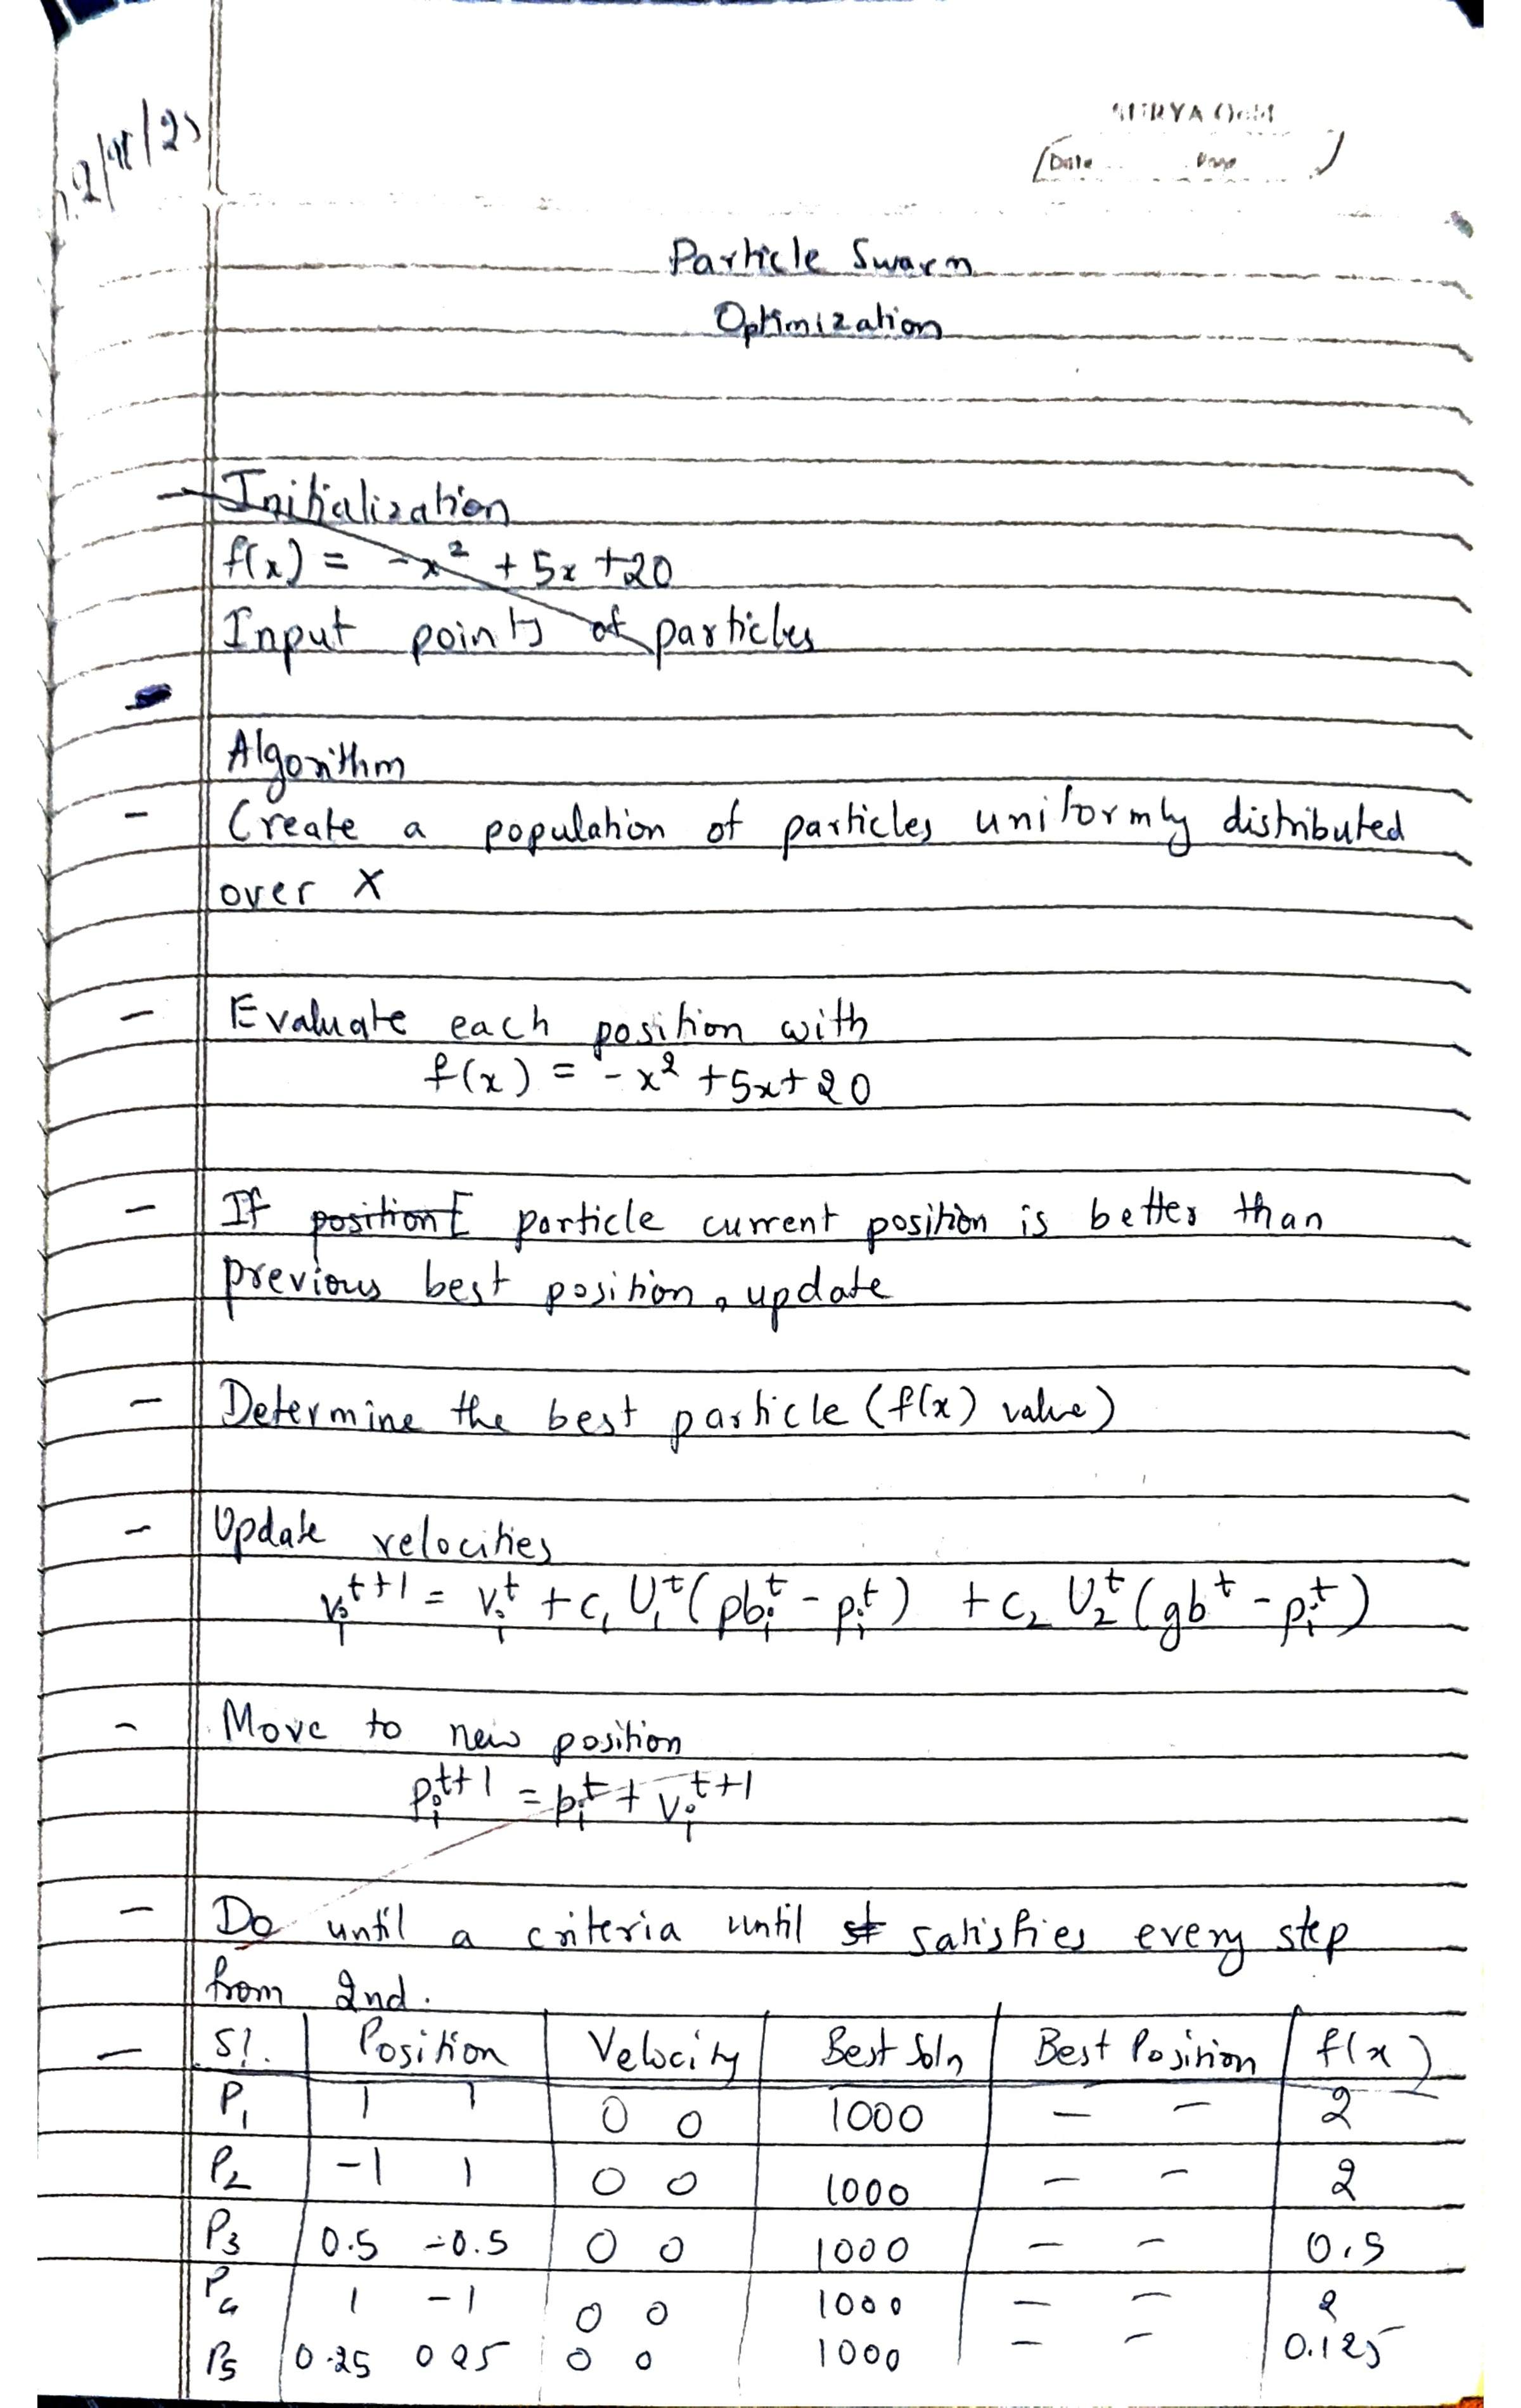 Date
Particle Swarm
Optimization
Initialization
f(x) = -x² + 5x + 20
Input points of particles
Algorithm
- Create a population of particles uniformly distributed
over X
- Evaluate each position with
f(x) = -x² + 5x + 20
- If particle current position is better than
previous best position, update
- Determine the best particle (f(x) value)
- Update velocities
vᵢᵗ⁺¹ = vᵢᵗ + c₁ U₁ᵗ (pbᵢᵗ - pᵢᵗ) + c₂ U₂ᵗ (gbᵗ - pᵢᵗ)
- Move to new position
pᵢᵗ⁺¹ = pᵢᵗ + vᵢᵗ⁺¹
- Do until a criteria until satisfies every step
from 2nd.
- Sl. Position Velocity Best Soln Best Position f(x)
P₁ 1 1 0 0 1000 - - 2
P₂ -1 1 0 0 1000 - - 2
P₃ 0.5 -0.5 0 0 1000 - - 0.5
P₄ 1 -1 0 0 1000 - - 2
P₅ 0.25 0.25 0 0 1000 - - 0.125